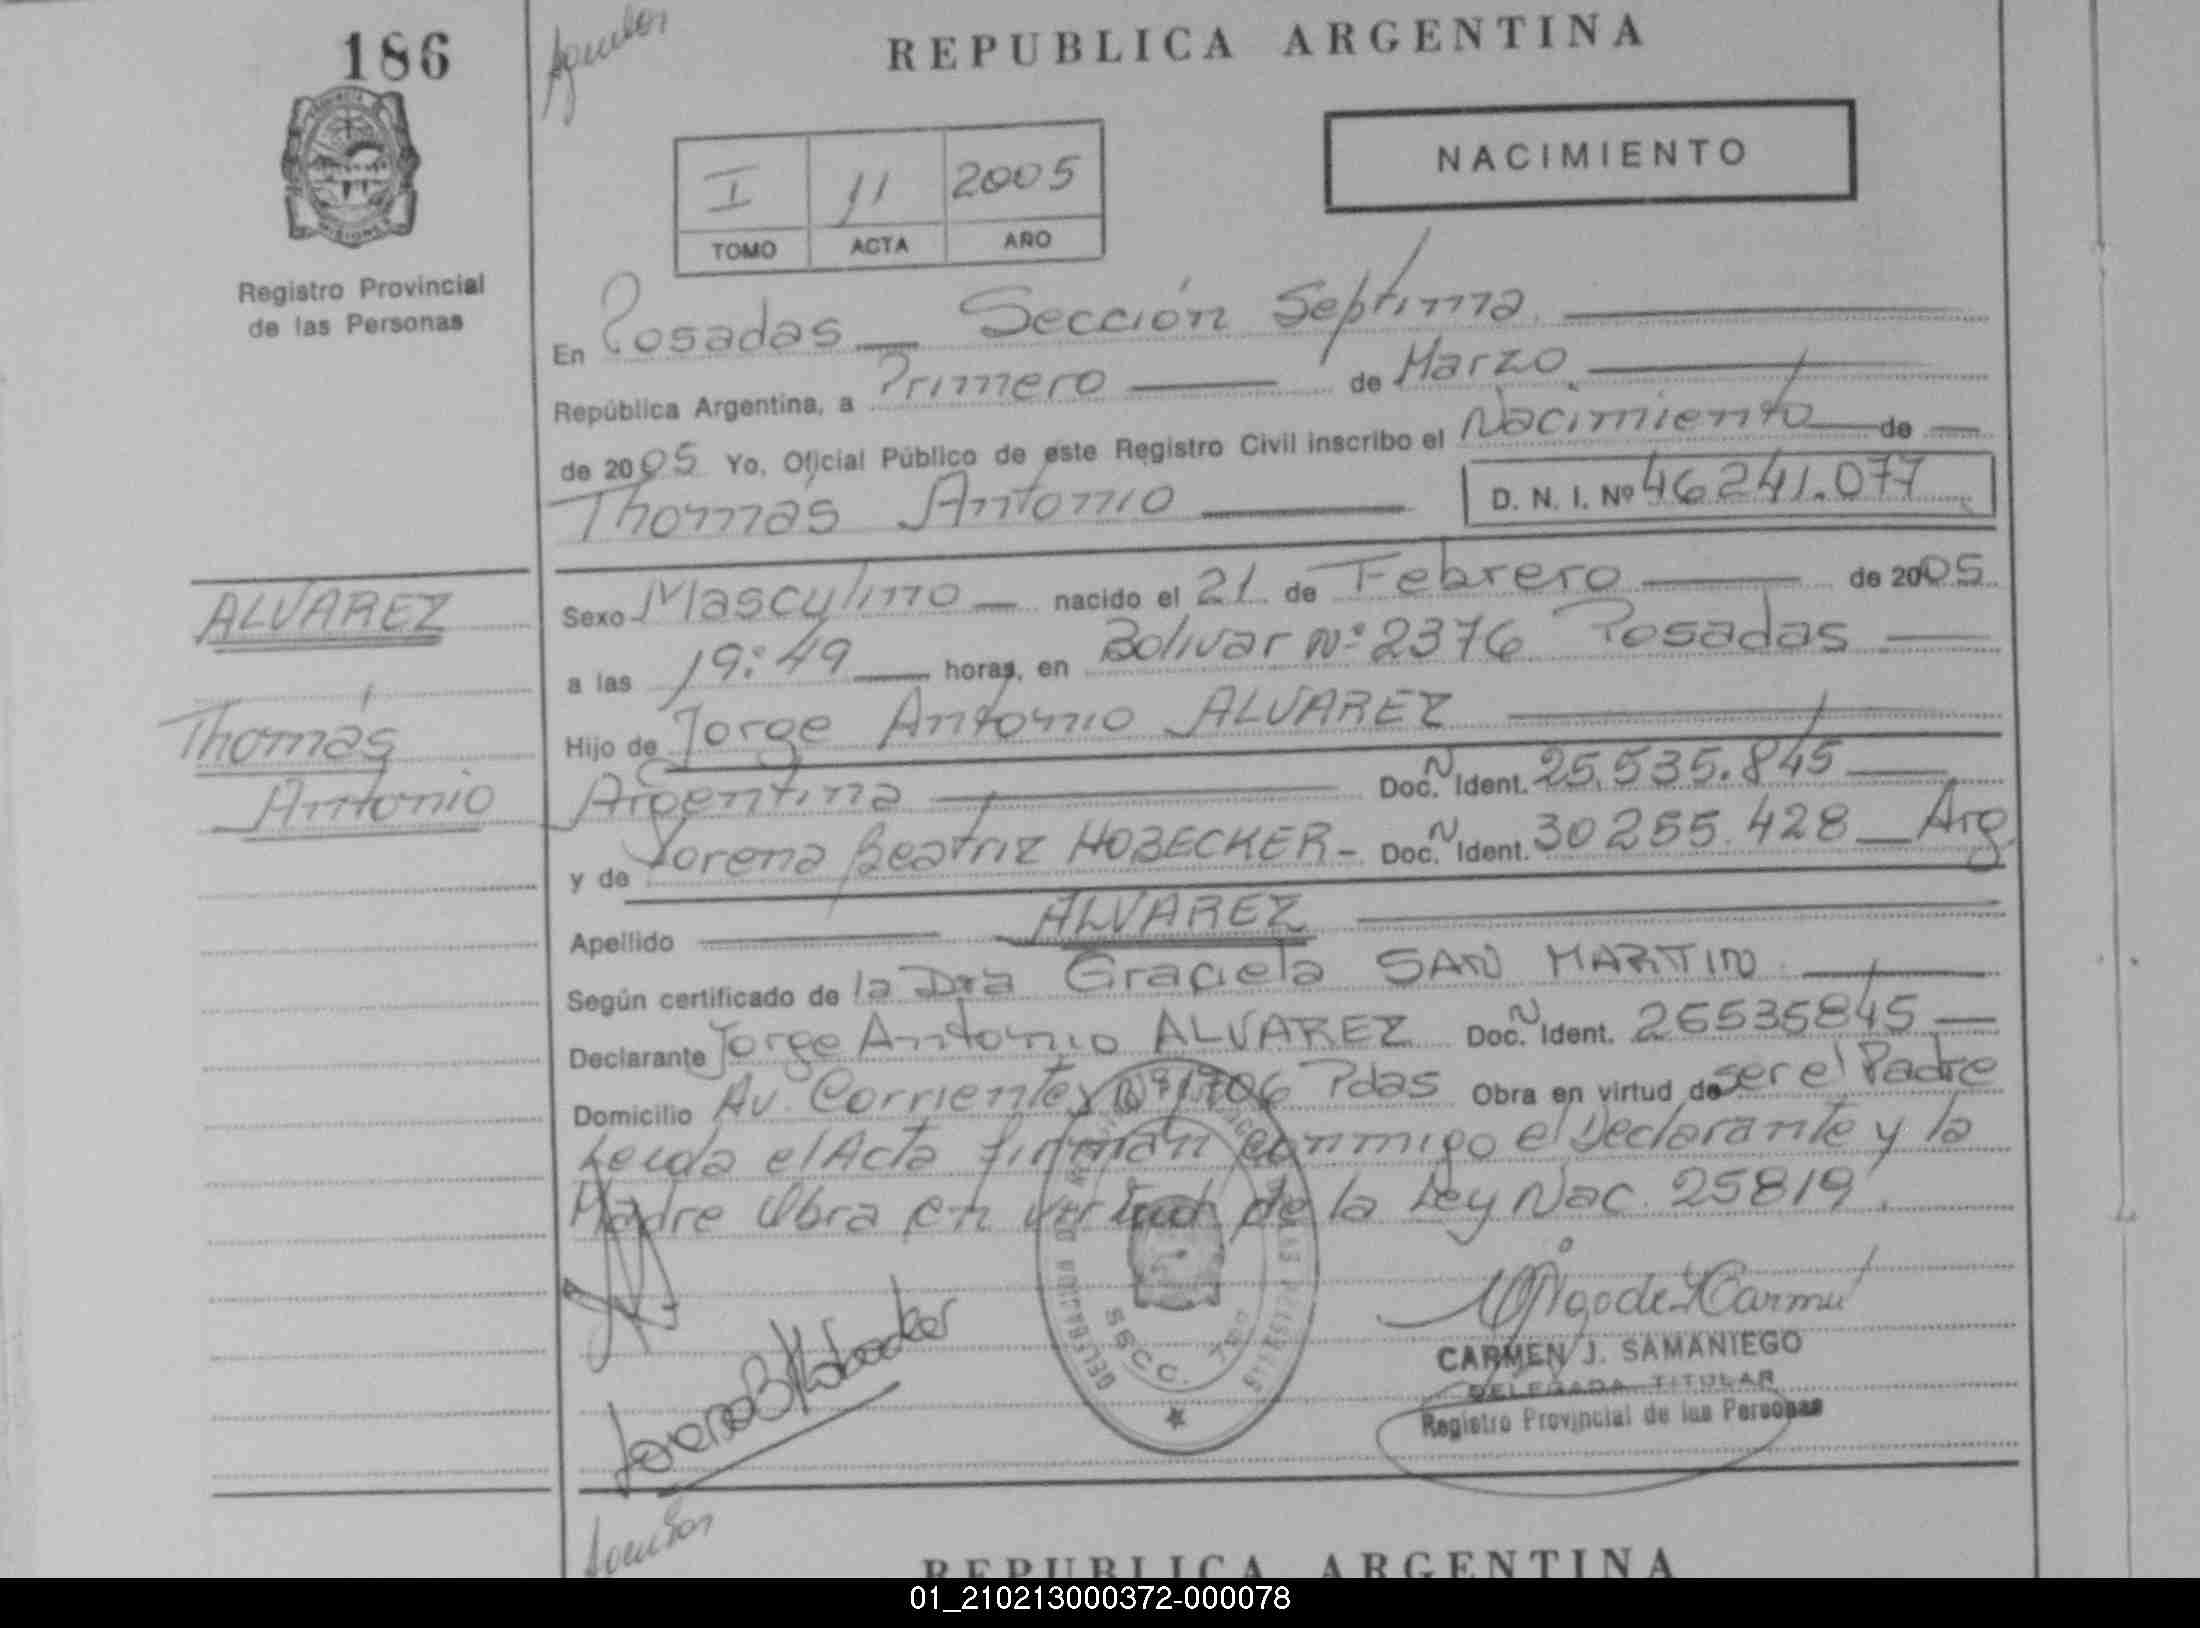 186
REPUBLICA ARGENTINA
NACIMIENTO
I 11 2005
TOMO ACTA AÑO
Registro Provincial
de las Personas
En Posadas — Sección Septima
República Argentina, a Primero de Marzo
de 2005 Yo, Oficial Público de este Registro Civil inscribo el Nacimiento de
Thomás Antonio D. N. I. Nº 46241.077
ALVAREZ
Thomás
Antonio
Sexo Masculino nacido el 21 de Febrero de 2005
a las 19:49 horas, en Bolivar Nº 2376 Posadas
Hijo de Jorge Antonio ALVAREZ
Argentina Doc. N Ident. 25.535.845
y de Lorena Beatriz HOBECKER - Doc. N Ident. 30255.428 — Arg.
Apellido ALVAREZ
Según certificado de la Dra Graciela SAN MARTIN
Declarante Jorge Antonio ALVAREZ Doc. N Ident. 25535845
Domicilio Av. Corrientes Nº 1706 Pdas Obra en virtud de ser el Padre
Leida el Acta firman conmigo el Declarante y la
Madre Obra en virtud de la Ley Nac. 25819.
Lorena B Hobecker
SECC. 7
CARMEN J. SAMANIEGO
DELEGADA TITULAR
Registro Provincial de las Personas
REPUBLICA ARGENTINA
01_210213000372-000078